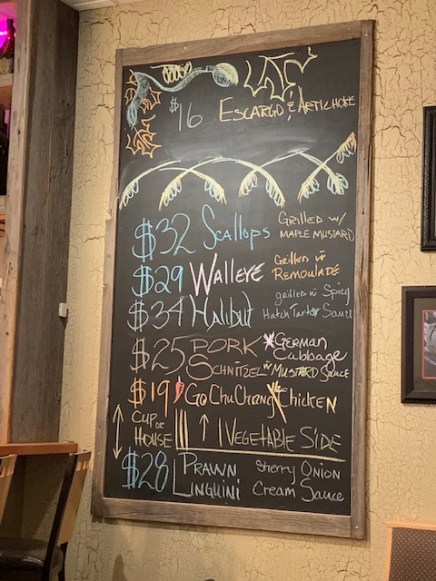 $16 ESCARGO & ARTICHOKE
$32 Scallops GRILLED W/
MAPLE MUSTARD
$29 WALLEYE Grilled w
REMOULADE
$34 Halibut grilled w Spicy
Hatch Tartar Sauce
$25 PORK *GERMAN
Cabbage
SCHNITZEL W MUSTARD SAUCE
$19 GoChuChang Chicken
CUP or
HOUSE ↑ 1 VEGETABLE SIDE
$28 PRAWN Sherry Onion
LINGUINI Cream Sauce